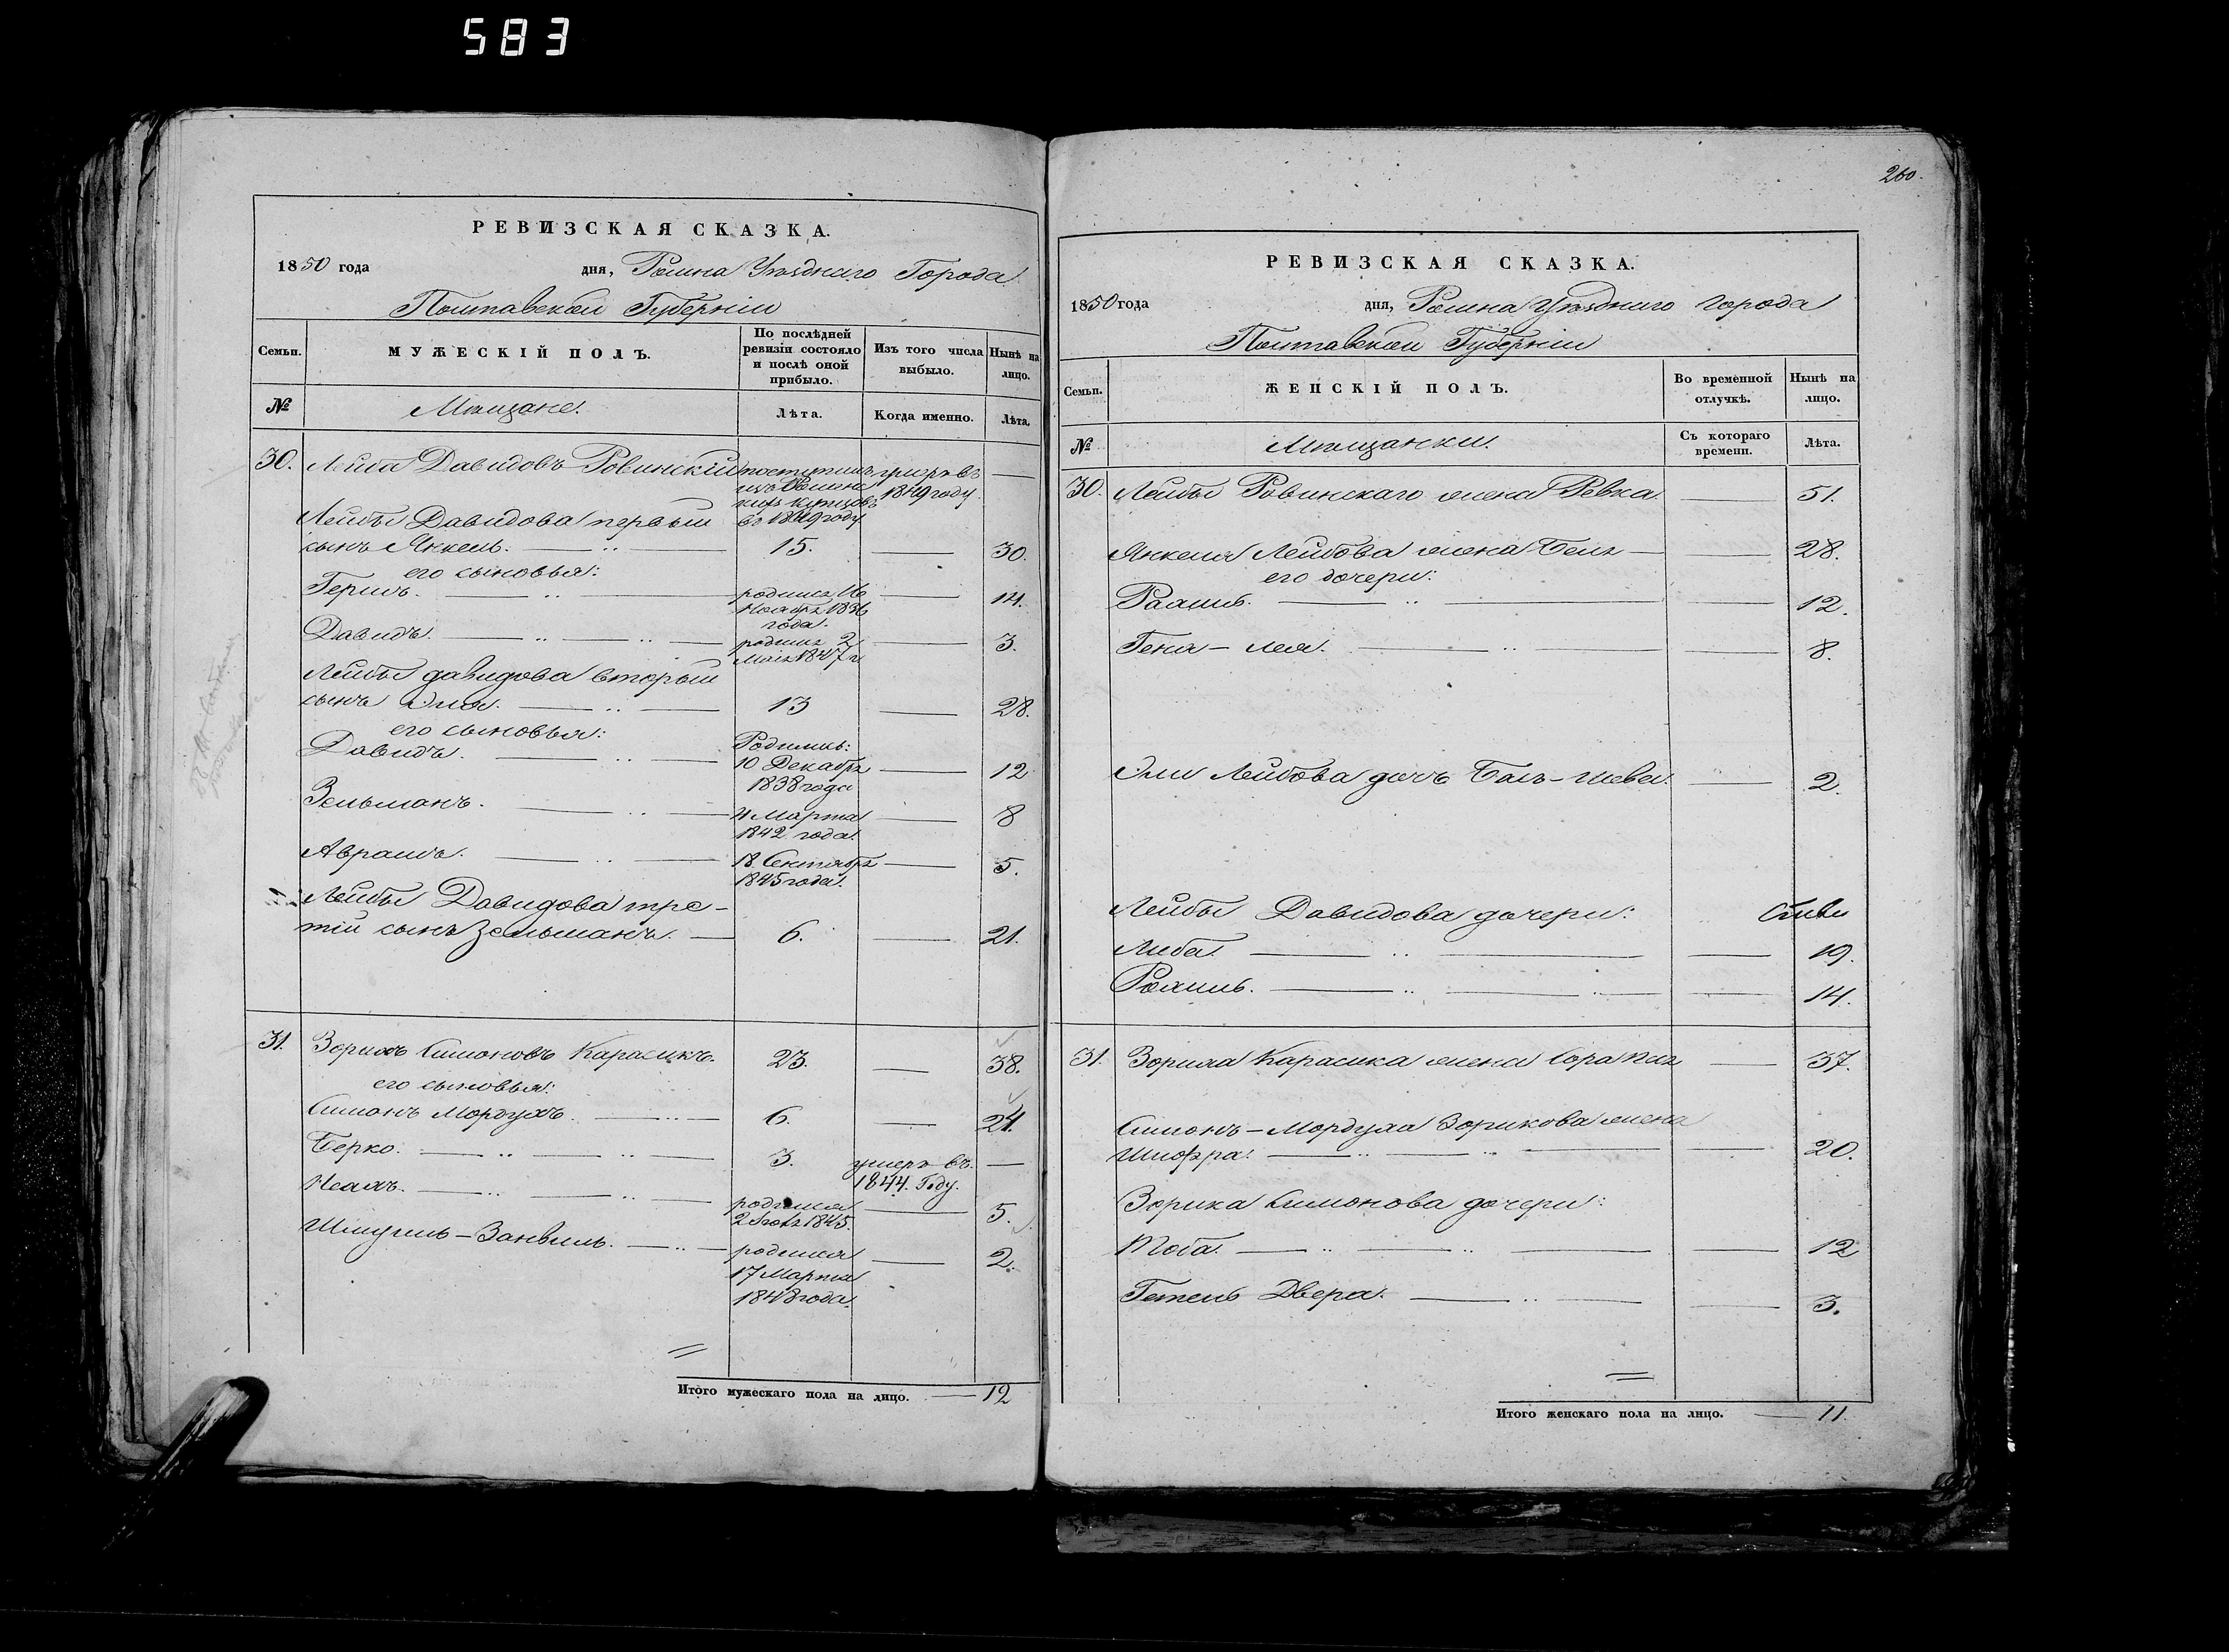 583
РЕВИЗСКАЯ СКАЗКА.
1850 года дня, Ромна Уѣзднаго Города
Полтавской Губерніи
Семьи. МУЖЕСКІЙ ПОЛЪ. По послѣдней ревизіи состояло и послѣ оной прибыло. Изъ того числа выбыло. Нынѣ на лицо.
№ Мѣщане. Лѣта. Когда именно. Лѣта.
30. Лейба Давидовъ Ровинскій поступилъ
изъ Роменс
кихъ купцовъ 1849 году.
Лейбы Давидова первый въ 1849 году
сынъ Янкель. 15. 30.
его сыновья:
Гершъ. родился 16 14.
Ноября 1836
года.
Давидъ. родился 2 3.
Маія 1847 г
Лейбы Давидова вторый
сынъ 13 28.
его сыновья:
Давидъ. Родились:
10 Декабря 12
1838 года
Зельманъ. 4 Марта 8
1842 года.
Абрамъ. 18 Сентября 5.
1845 года.
Лейбы Давидова тре-
тій сынъ Зельманъ. 6. 21.
31. Зорихъ Симоновъ Карасикъ. 23. 38.
его сыновья:
Симонъ Мордухъ. 6. 21.
Берко. 3. умеръ въ
1844. Году.
родился 5.
1845.
Шмуиль-Занвиль. родился 2.
17 Марта
1848 года.
Итого мужескаго пола на лицо. 12
260.
РЕВИЗСКАЯ СКАЗКА.
1850 года дня, Ромна Уѣзднаго Города
Полтавской Губерніи
Семьи. ЖЕНСКІЙ ПОЛЪ. Во временной отлучкѣ. Нынѣ на лицо.
№ Мѣщанки. Съ котораго времени. Лѣта.
30. Лейбы Ровинскаго жена Ревка. 51.
Янкеля Лейбова жена 28.
его дочери:
12.
Гена-Лея. 8.
Лейбова дочь 2.
Лейбы Давидова дочери:
Либа. 19.
14.
31. Карасика жена Сора 37.
Симонъ-Мордуха Зорихова жена
Шифра. 20.
Зориха Симонова дочери:
Тоба. 12
Двера. 3.
Итого женскаго пола на лицо. 11.